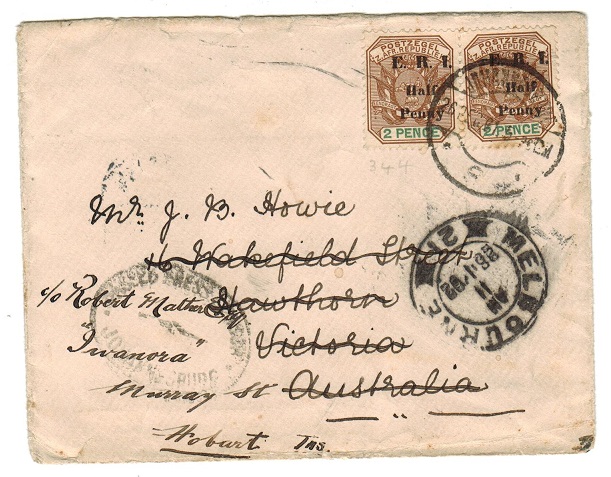 POSTZEGEL
Z. AFR. REPUBLIEK
E. R. I.
Half
Penny
2 PENCE
POSTZEGEL
Z. AFR. REPUBLIEK
E. R. I.
Half
Penny
2 PENCE
344
Mr. J. B. Howie
16 Wakefield Street
Hawthorn
Victoria
Australia
c/o Robert Mather Esq
"Iwanora"
Murray St
Hobart Tas.
MELBOURNE
12
11
AM